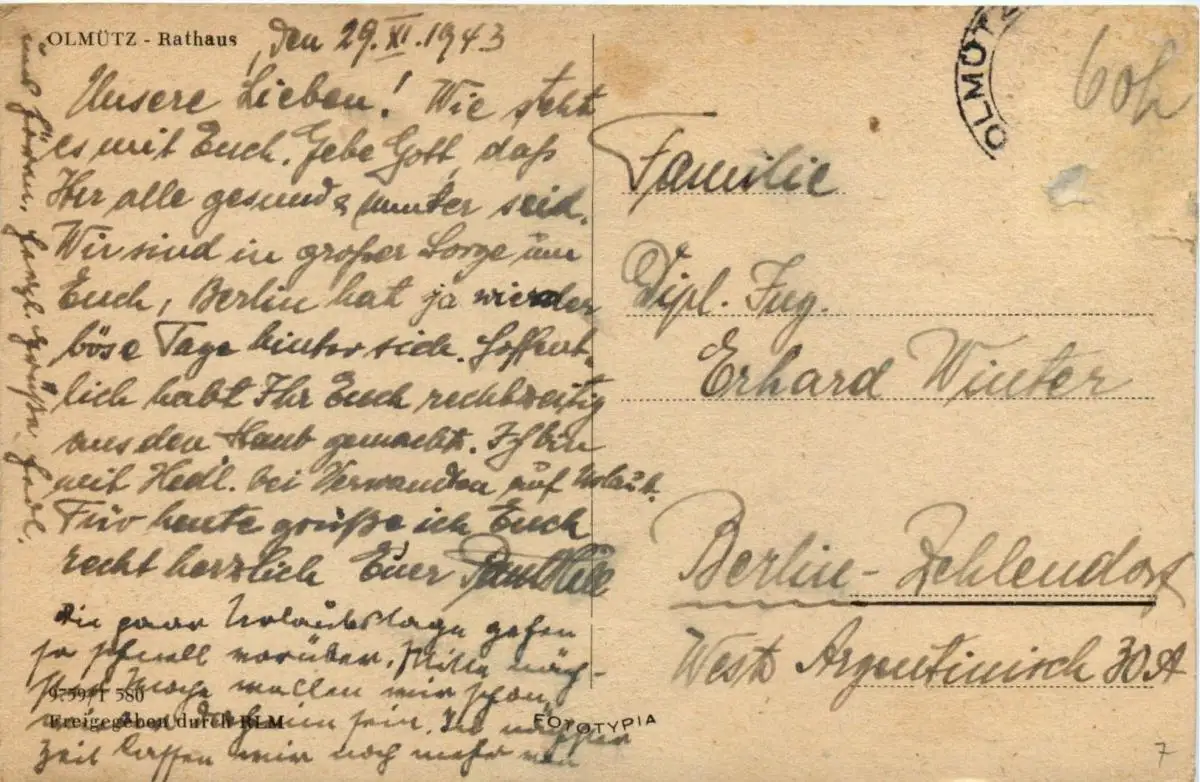 OLMÜTZ - Rathaus
, den 29. XI. 1943
Unsere Lieben! Wie steht
es mit Euch. Gebe Gott, daß
Ihr alle gesund & munter seid.
Wir sind in großer Sorge um
Euch, Berlin hat ja wieder
böse Tage hinter sich. Hoffent-
lich habt Ihr Euch rechtzeitig
aus dem Staub gemacht. Ich bin
mit Hedl. bei Verwandten auf Urlaub.
Für heute grüße ich Euch
recht herzlich Euer
Die paar Urlaubstage gehen
so schnell vorüber. Mitte näch-
sten Woche wollen wir schon
wieder daheim sein. In nächster
Zeit lassen wir noch mehr von
uns hören. Herzl. Grüße Hedl.
9759/1 580
Freigegeben durch RLM
FOTOTYPIA
OLMÜTZ
60h
Familie
Dipl. Ing.
Erhard Winter
Berlin - Zehlendorf
West Argentinisch 30A
7